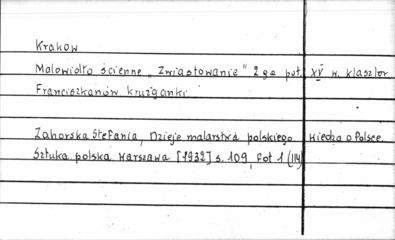 Kraków
Malowidło ścienne „Zwiastowanie" 2ga poł. XV w. klasztor
Franciszkanów krużganki.
Zahorska Stefania, Dzieje malarstwa polskiego. Wiedza o Polsce.
Sztuka polska Warszawa [1932] s. 109, fot 1 (114)